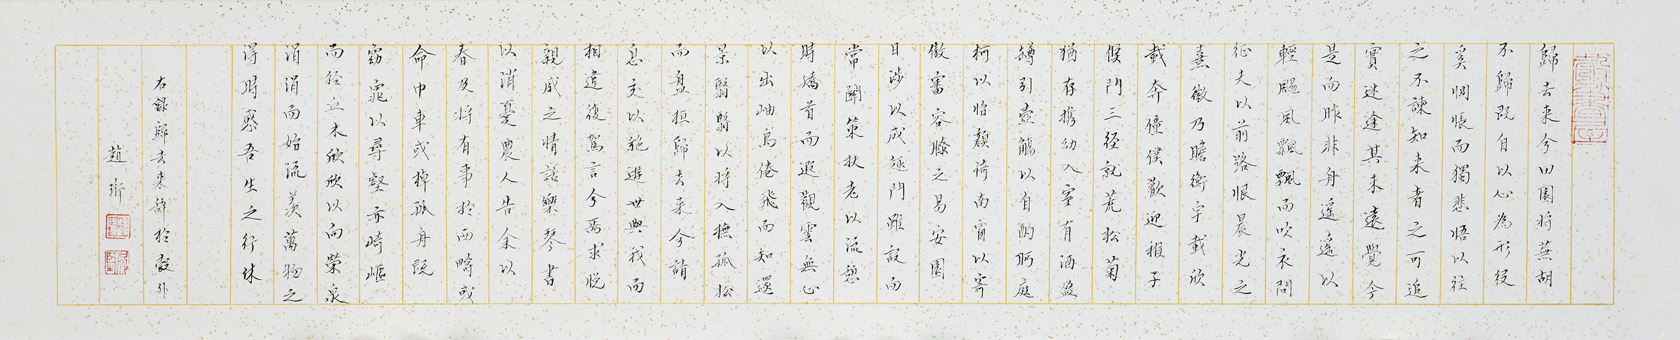 歸去来兮田園将蕪胡
不歸既自以心為形役
奚惆悵而獨悲悟以往
之不諫知来者之可追
實迷途其未遠覺今
是而昨非舟遥遥以
輕颺風飄飄而吹衣問
征夫以前路恨晨光之
熹微乃瞻衡宇載欣
載奔僮僕歡迎稚子
候門三径就荒松菊
猶存携幼入室有酒盈
罇引壺觴以自酌眄庭
柯以怡顔倚南窗以寄
傲審容膝之易安園
日涉以成趣門雖設而
常關策扶老以流憩
時矯首而遐觀雲無心
以出岫鳥倦飛而知還
景翳翳以将入撫孤松
而盘桓歸去来兮請
息交以絶遊世與我而
相違復駕言兮焉求悦
親戚之情話樂琴書
以消憂農人告余以
春及将有事於西疇或
命巾車或棹孤舟既
窈窕以尋壑亦崎嶇
而經丘木欣欣以向榮泉
涓涓而始流羡萬物之
得時感吾生之行休
右録歸去来辭於
趙